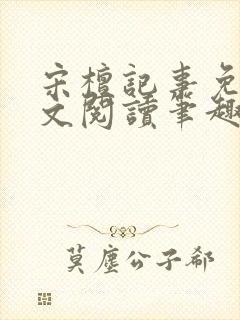 宋檀記事免
文閱讀筆趣
莫塵公子郤